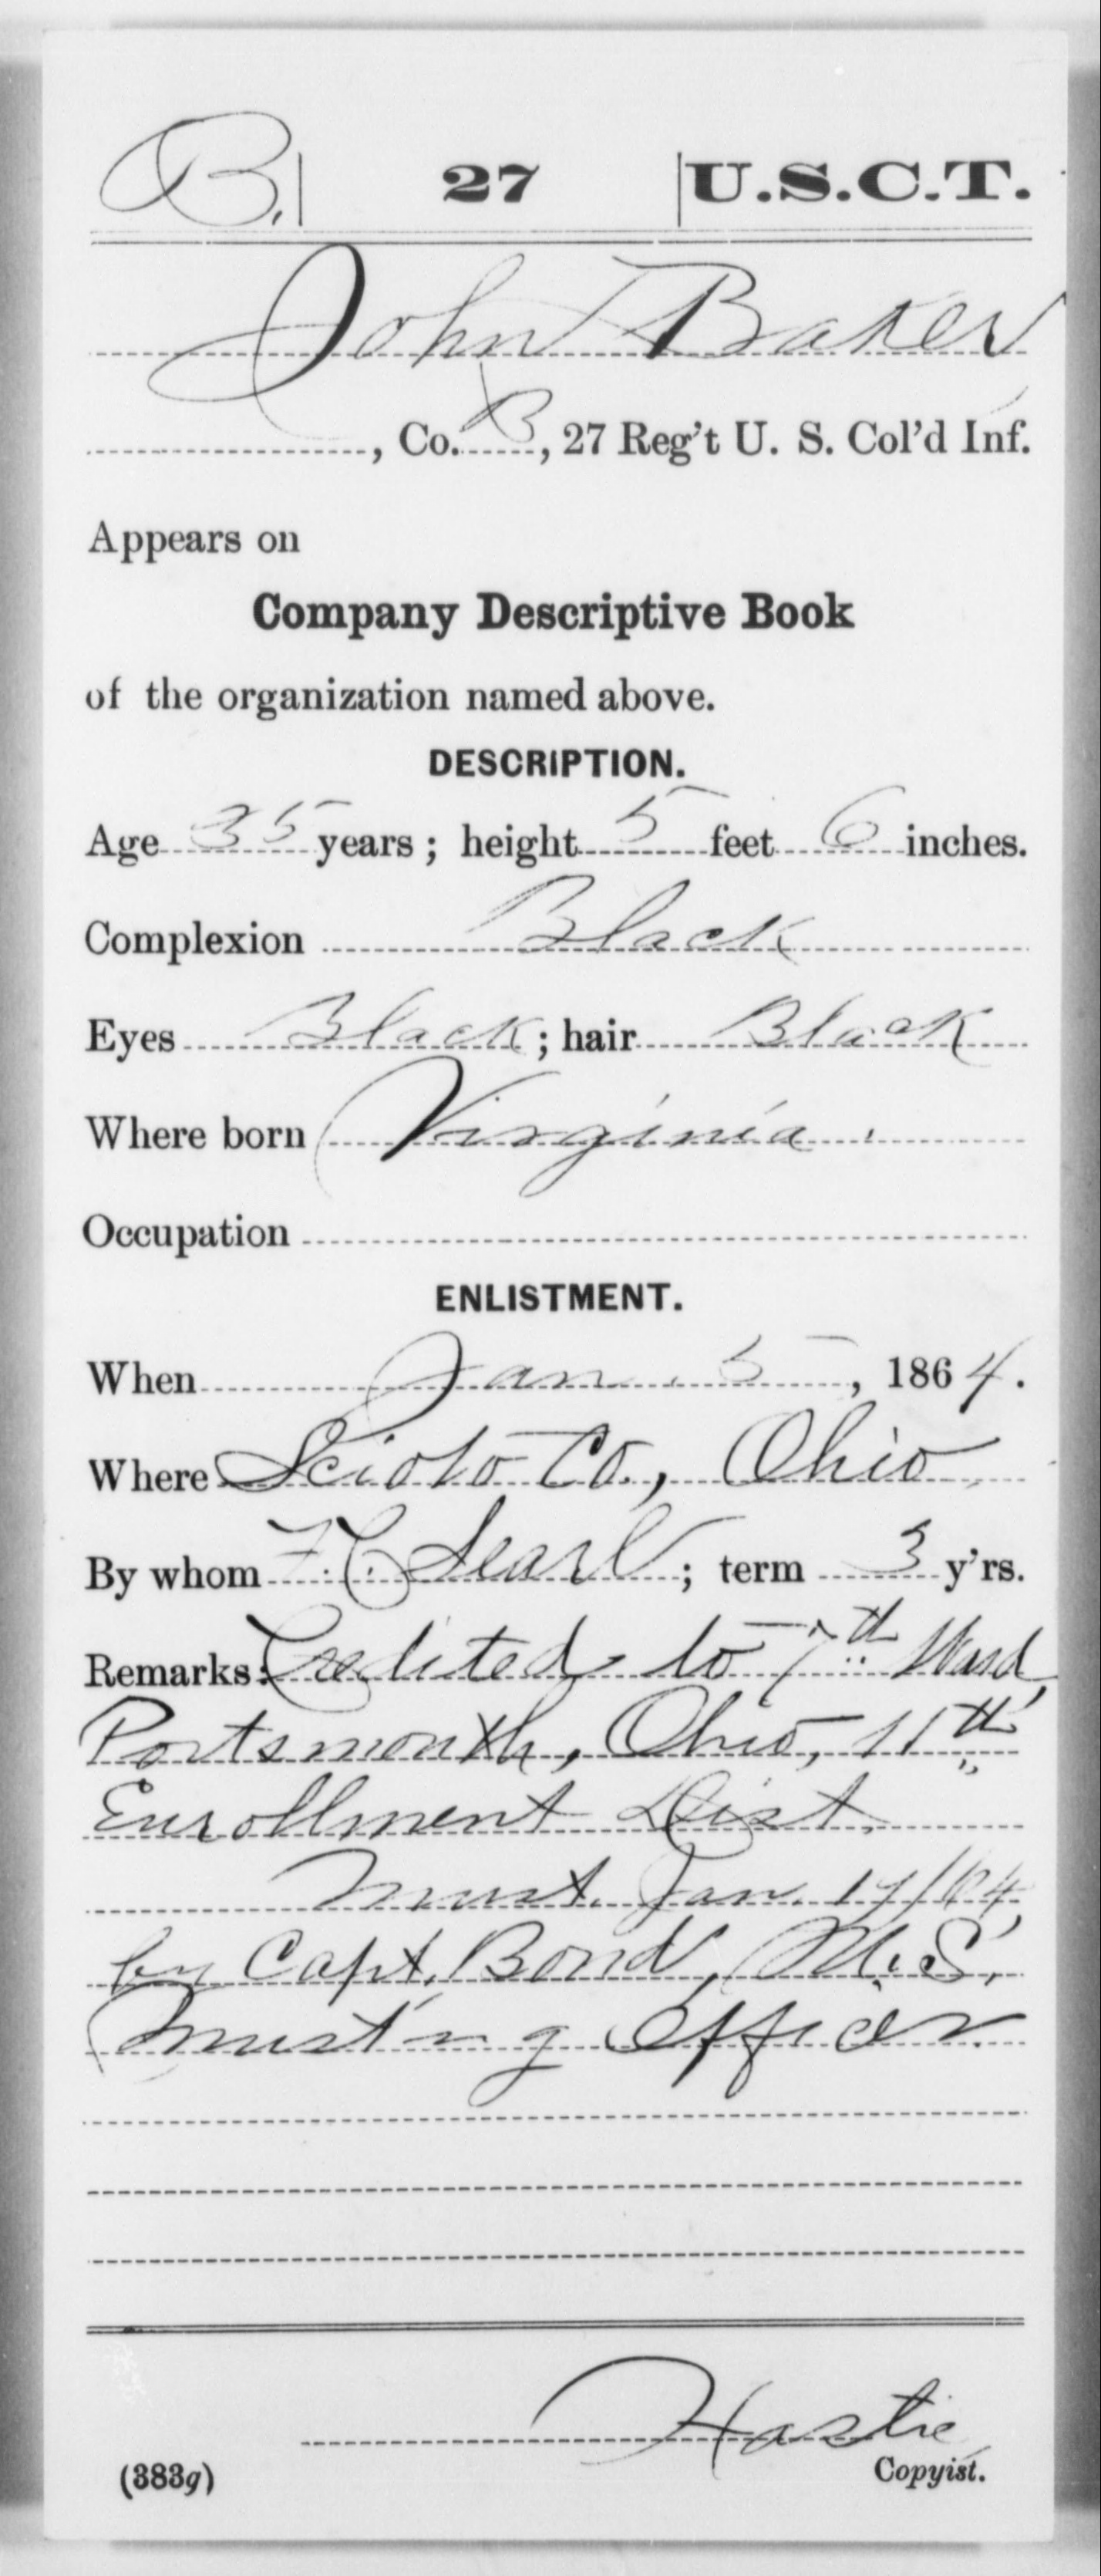 B. | 27 | U.S.C.T.
John Baker
, Co. B, 27 Reg't U. S. Col'd Inf.
Appears on
Company Descriptive Book
of the organization named above.
DESCRIPTION.
Age 35 years; height 5 feet 6 inches.
Complexion Black
Eyes Black; hair Black
Where born Virginia
Occupation
ENLISTMENT.
When Jan. 5, 1864.
Where Scioto Co., Ohio
By whom F.C. Searl; term 3 y'rs.
Remarks: Credited to 7th Ward
Portsmouth, Ohio, 11th
Enrollment Dist.
Must. Jan. 17/64
by Capt. Bond, M.S.
Must'ng Officer
Hastie
(383g) Copyist.